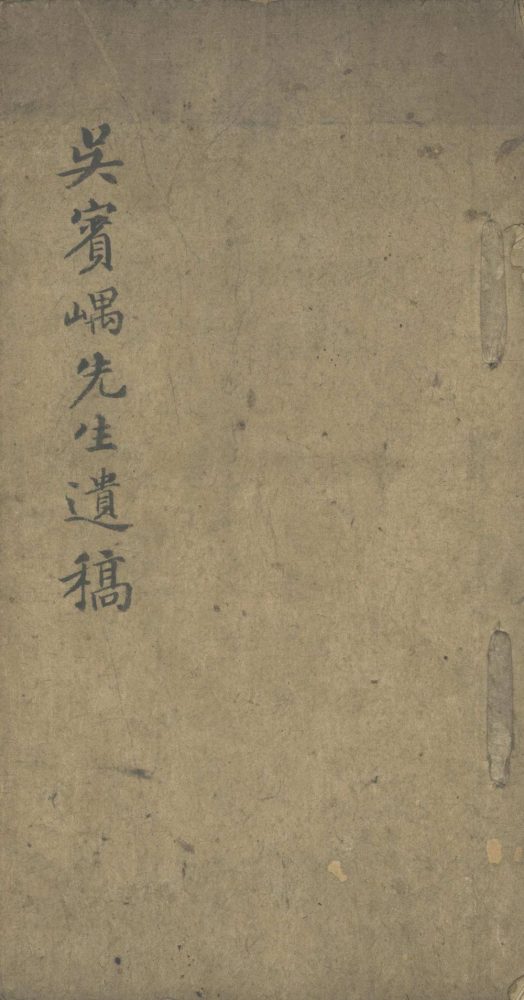 吳賓嵎先生遺稿